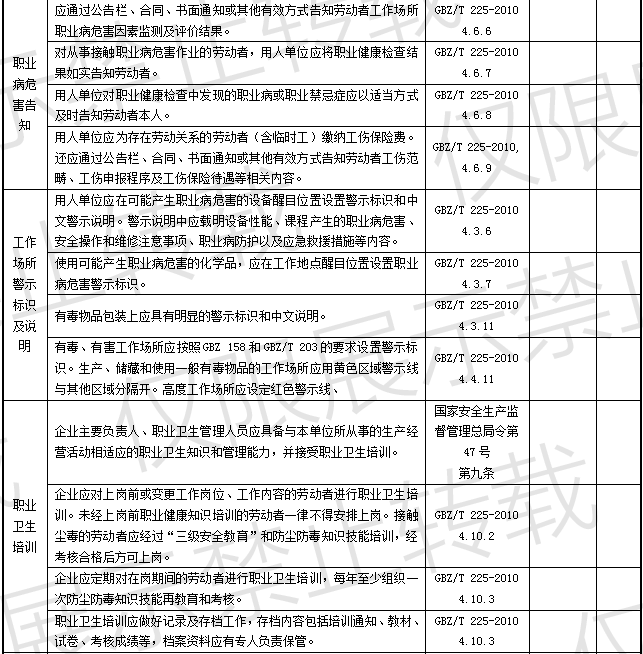 应通过公告栏、合同、书面通知或其他有效方式告知劳动者工作场所
职业病危害因素监测及评价结果。
GBZ/T 225-2010
4.6.6
职业
病危
害告
知
对从事接触职业病危害作业的劳动者，用人单位应将职业健康检查结
果如实告知劳动者。
GBZ/T 225-2010
4.6.7
用人单位对职业健康检查中发现的职业病或职业禁忌症应以适当方式
及时告知劳动者本人。
GBZ/T 225-2010
4.6.8
用人单位应为存在劳动关系的劳动者（含临时工）缴纳工伤保险费。
还应通过公告栏、合同、书面通知或其他有效方式告知劳动者工伤范
畴、工伤申报程序及工伤保险待遇等相关内容。
GBZ/T 225-2010,
4.6.9
工作
场所
警示
标识
及说
明
用人单位应在可能产生职业病危害的设备醒目位置设置警示标识和中
文警示说明。警示说明中应载明设备性能、课程产生的职业病危害、
安全操作和维修注意事项、职业病防护以及应急救援措施等内容。
GBZ/T 225-2010
4.3.6
使用可能产生职业病危害的化学品，应在工作地点醒目位置设置职业
病危害警示标识。
GBZ/T 225-2010
4.3.7
有毒物品包装上应具有明显的警示标识和中文说明。
GBZ/T 225-2010
4.3.11
有毒、有害工作场所应按照GBZ 158和GBZ/T 203的要求设置警示标
识。生产、储藏和使用一般有毒物品的工作场所应用黄色区域警示线
与其他区域分隔开。高度工作场所应设定红色警示线、
GBZ/T 225-2010
4.4.11
职业
卫生
培训
企业主要负责人、职业卫生管理人员应具备与本单位所从事的生产经
营活动相适应的职业卫生知识和管理能力，并接受职业卫生培训。
国家安全生产监
督管理总局令第
47号
第九条
企业应对上岗前或变更工作岗位、工作内容的劳动者进行职业卫生培
训。未经上岗前职业健康知识培训的劳动者一律不得安排上岗。接触
尘毒的劳动者应经过“三级安全教育”和防尘防毒知识技能培训，经
考核合格后方可上岗。
GBZ/T 225-2010
4.10.2
企业应定期对在岗期间的劳动者进行职业卫生培训，每年至少组织一
次防尘防毒知识技能再教育和考核。
GBZ/T 225-2010
4.10.3
职业卫生培训应做好记录及存档工作，存档内容包括培训通知、教材、
试卷、考核成绩等，档案资料应有专人负责保管。
GBZ/T 225-2010
4.10.3
仅限展示禁止转载